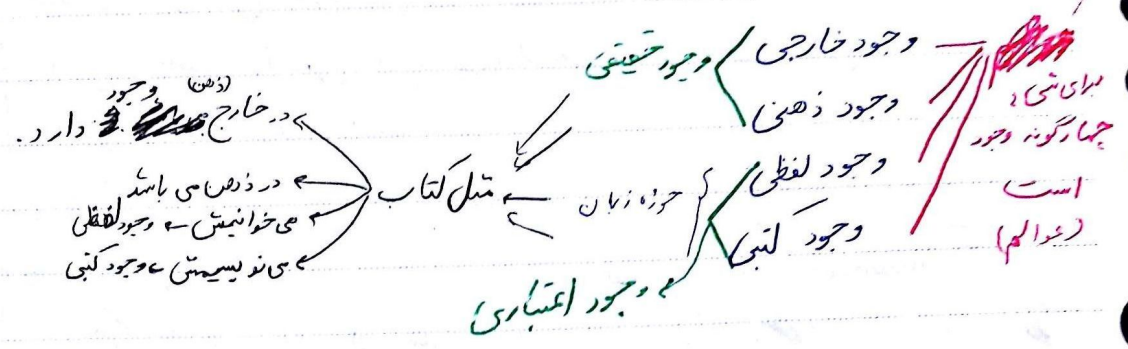 برای شیء
چهارگونه وجود
است
(عوالم)
وجود خارجی
وجود ذهنی
وجود لفظی
وجود کتبی
وجود حقیقی
وجود اعتباری
حوزه زبان
مثل کتاب
در خارج (ذهن) وجود دارد.
در ذهن می باشد
می خوانیمش ← وجود لفظی
می نویسیمش ← وجود کتبی